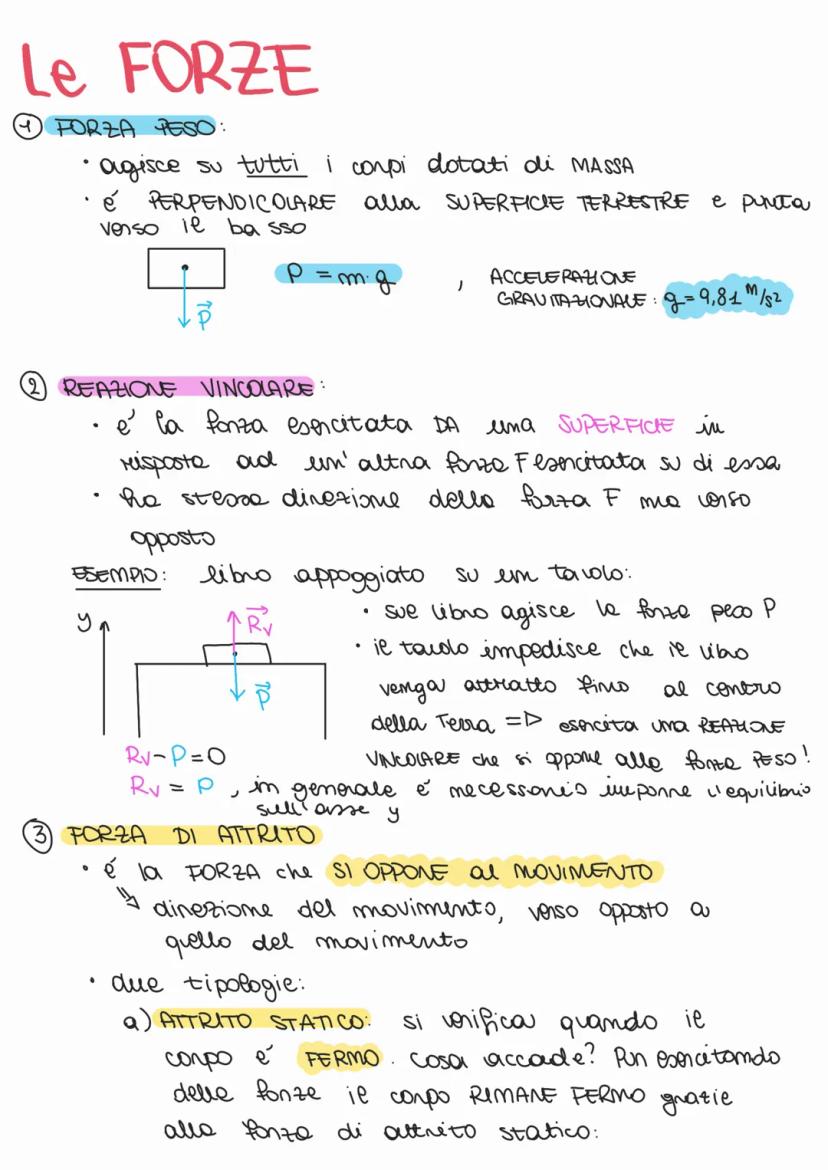 Le FORZE
1 FORZA PESO:
• agisce su tutti i corpi dotati di MASSA
• é PERPENDICOLARE alla SUPERFICIE TERRESTRE e punta
verso il basso
P = m·g , ACCELERAZIONE
GRAVITAZIONALE: g=9,81 m/s²
P
2 REAZIONE VINCOLARE:
• e' la forza esercitata DA una SUPERFICIE in
risposta ad un'altra forza F esercitata su di essa
• ha stessa direzione della forza F ma verso
opposto
ESEMPIO: libro appoggiato su un tavolo:
y Rv • sul libro agisce la forza peso P
• il tavolo impedisce che il libro
P venga attratto fino al centro
della Terra => esercita una REAZIONE
Rv-P=0 VINCOLARE che si oppone alla forza PESO!
Rv = P , in generale é necessario imporre l'equilibrio
sull'asse y
3 FORZA DI ATTRITO
• é la FORZA che SI OPPONE al MOVIMENTO
direzione del movimento, verso opposto a
quello del movimento
• due tipologie:
a) ATTRITO STATICO: si verifica quando il
corpo é FERMO. Cosa accade? Pur esercitando
delle forze il corpo RIMANE FERMO grazie
alla forza di attrito statico: